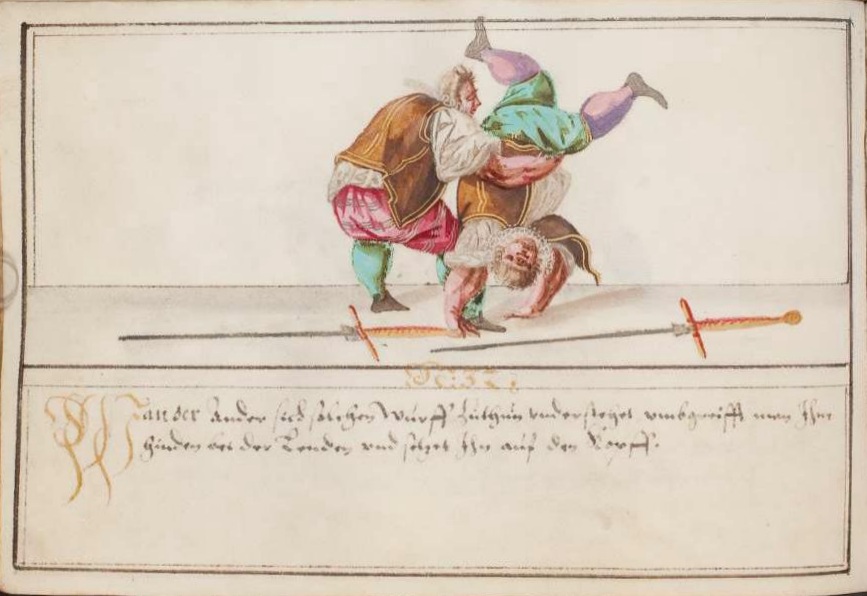 No: 32.
Wan der Ander sich solchen Wurff zuthun understehet umbgreifft man Ihne
hinden bei der Lenden und setzet Ihn auf den Kopff.